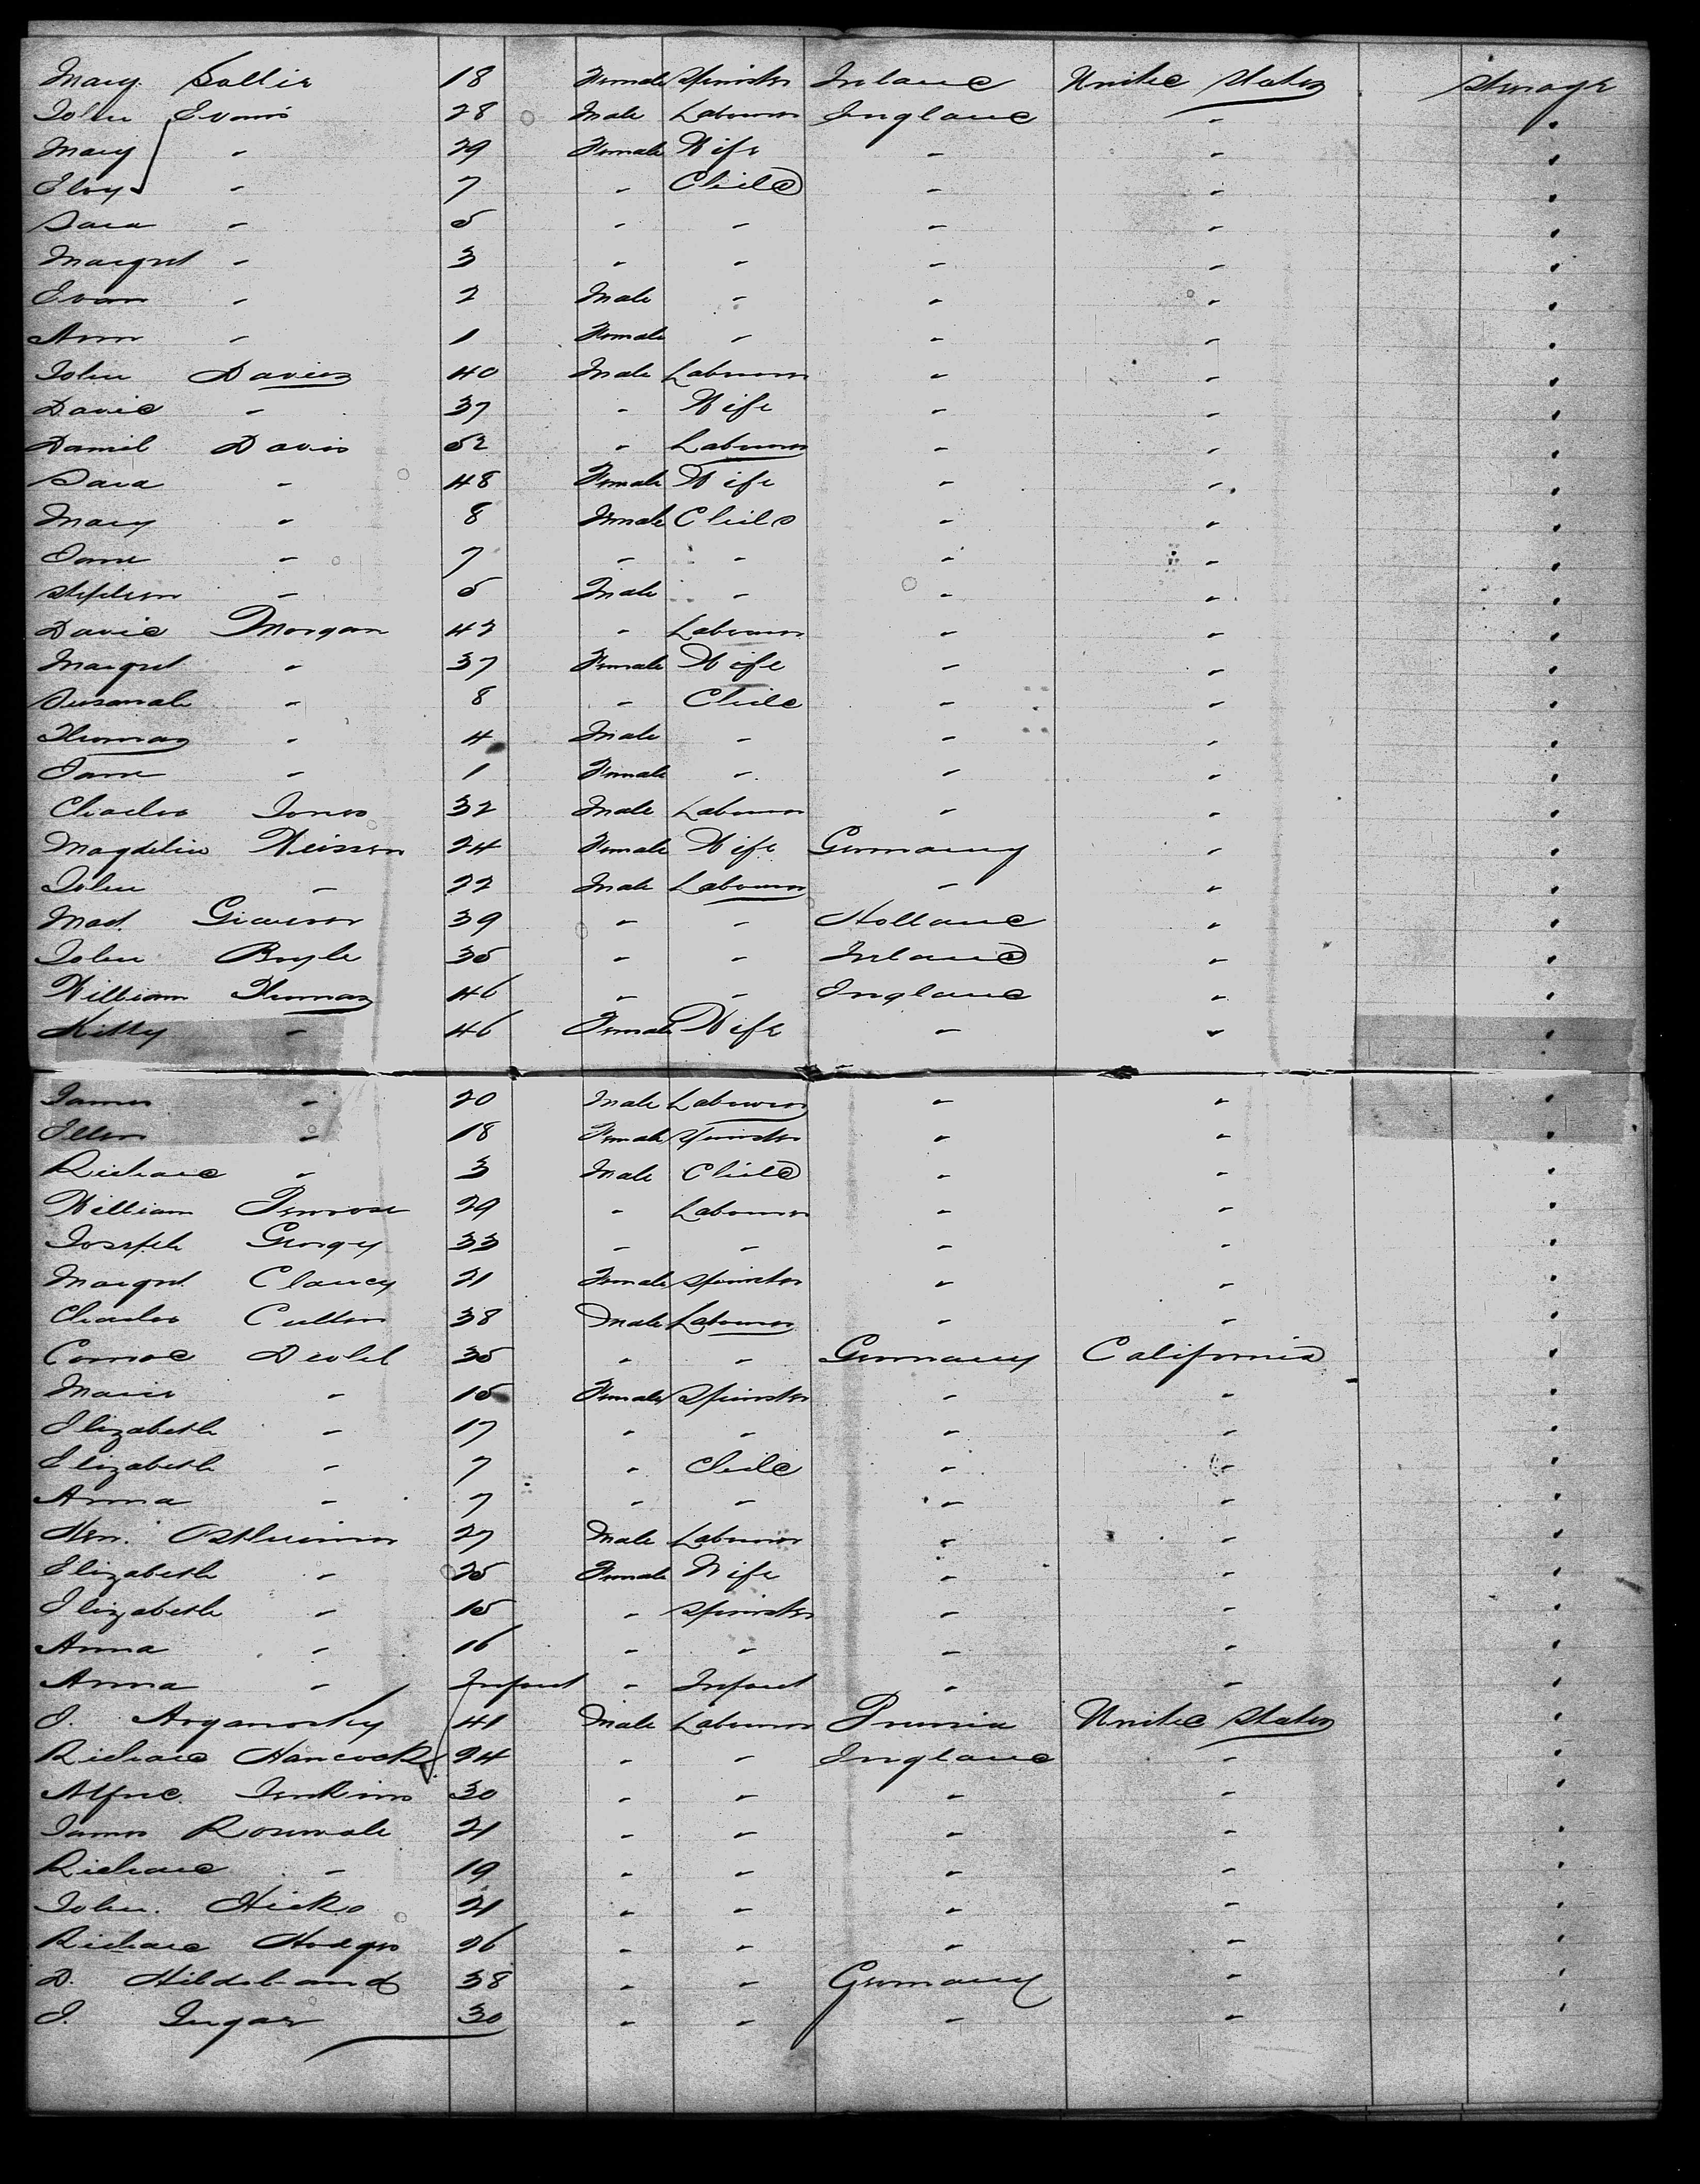 Mary Sallie 18 Female Spinster Ireland United States Steerage
John Evans 28 Male Labourer England " "
Mary " 29 Female Wife " " "
Elvy " 7 " Child " " "
Sara " 5 " " " " "
Margret " 3 " " " " "
Evan " 2 Male " " " "
Ann " 1 Female " " " "
John Davies 40 Male Labourer " " "
David " 37 " Wife " " "
Daniel Davis 52 " Labourer " " "
Sara " 48 Female Wife " " "
Mary " 8 Female Child " " "
Jane " 7 " " " " "
Stephen " 5 Male " " " "
David Morgan 42 " Labourer " " "
Margret " 37 Female Wife " " "
Susanah " 8 " Child " " "
Thomas " 4 Male " " " "
Jane " 1 Female " " " "
Charles Jones 32 Male Labourer " " "
Magdelin 24 Female Wife Germany " "
John " 22 Male Labourer " " "
Mad. 39 " " Holland " "
John Boyle 35 " " Ireland " "
William Thomas 46 " " England " "
Kitty " 46 Female Wife " " "
James " 20 Male Labourer " " "
Ellen " 18 Female Spinster " " "
Richard " 3 Male Child " " "
William Penrose 29 " Labourer " " "
Joseph Georgy 33 " " " " "
Margret Clancy 21 Female Spinster " " "
Charles Cullen 38 Male Labourer " " "
35 " " Germany California "
Marie " 15 Female Spinster " " "
Elizabeth " 17 " " " " "
Elizabeth " 7 " Child " " "
Anna " 7 " " " " "
Hen. 27 Male Labourer " " "
Elizabeth " 25 Female Wife " " "
Elizabeth " 15 " Spinster " " "
Anna " 16 " " " " "
Anna " Infant " Infant " " "
J. Arganosky 41 Male Labourer Prussia United States "
Richard Hancock 24 " " England " "
Alfred Jenkins 30 " " " " "
James Rosewale 21 " " " " "
Richard " 19 " " " " "
John Hicks 21 " " " " "
Richard Hodges 26 " " " " "
D. Hildebrand 38 " " Germany " "
J. Jugar 30 " " " " "